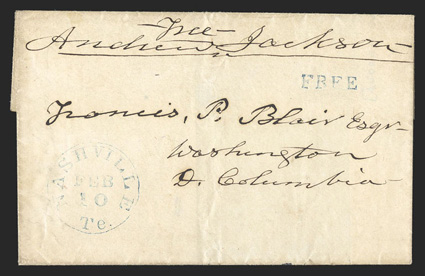 Free
Andrew Jackson
FREE
Francis, P. Blair Esqr
Washington
D. Columbia
NASHVILLE Te.
FEB
10